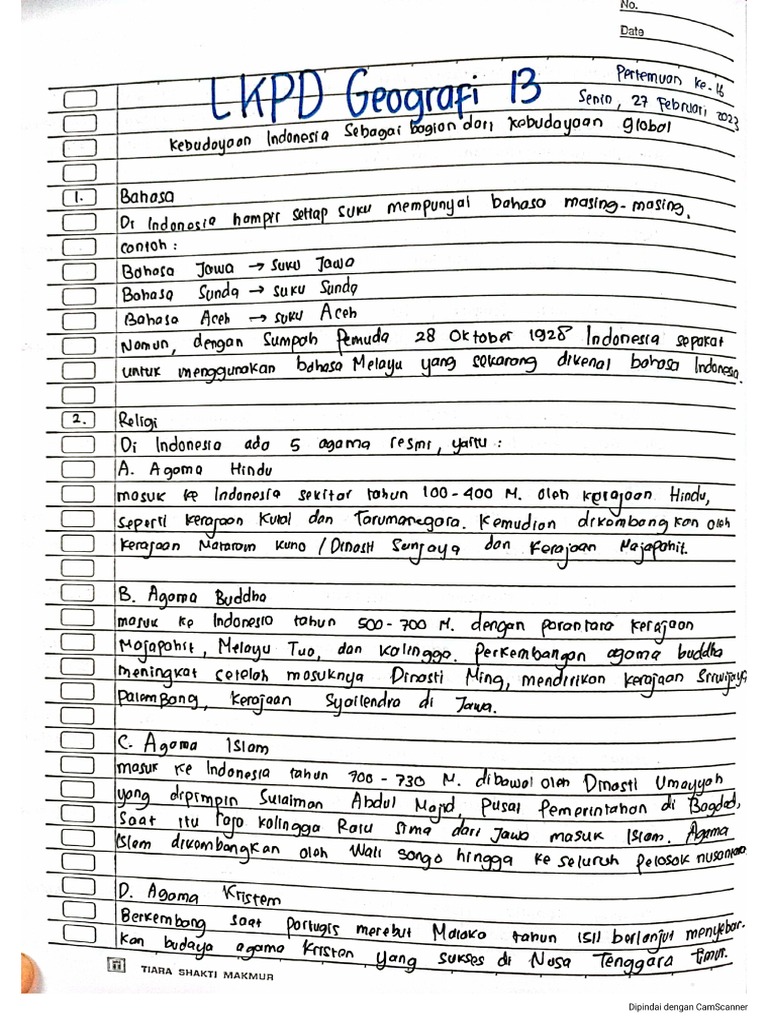 No.
Date
LKPD Geografi 13
Pertemuan ke-16
Senin, 27 Februari 2023
Kebudayaan Indonesia Sebagai Bagian dari Kebudayaan global
1. Bahasa
Di Indonesia hampir settap suku mempunyai bahasa masing-masing.
contoh :
Bahasa Jawa → suku Jawa
Bahasa Sunda → suku Sunda
Bahasa Aceh → suku Aceh
Namun, dengan Sumpah Pemuda 28 Oktober 1928 Indonesia sepakat
untuk menggunakan bahasa Melayu yang sekarang dikenal bahasa Indonesia.
2. Religi
Di Indonesia ada 5 agama resmi, yaitu :
A. Agama Hindu
masuk ke Indonesia sekitar tahun 100-400 M. oleh kerajaan Hindu,
seperti kerajaan Kutai dan Tarumanegara. Kemudian dikembangkan oleh
kerajaan Mataram kuno / Dinasti Sanjaya dan Kerajaan Majapahit.
B. Agama Buddha
masuk ke Indonesia tahun 500-700 M. dengan perantara kerajaan
Majapahit, Melayu Tua, dan kalingga. Perkembangan agama buddha
meningkat setelah masuknya Dinasti Ming, mendirikan kerajaan Sriwijaya
Palembang, kerajaan Syailendra di Jawa.
C. Agama Islam
masuk ke Indonesia tahun 700-730 M. dibawa oleh Dinasti Umayyah
yang dipimpin Sulaiman Abdul Majid, Pusat Pemerintahan di Bagdad,
Saat itu raja kalingga Ratu Sima dari Jawa masuk Islam. Agama
Islam dikembangkan oleh Wali songo hingga ke seluruh pelosok nusantara
D. Agama Kristem
Berkembang saat portugis merebut Malaka tahun 1511 berlanjut menyebar-
kan budaya agama Kristen yang sukses di Nusa Tenggara timur.
TIARA SHAKTI MAKMUR
Dipindai dengan CamScanner